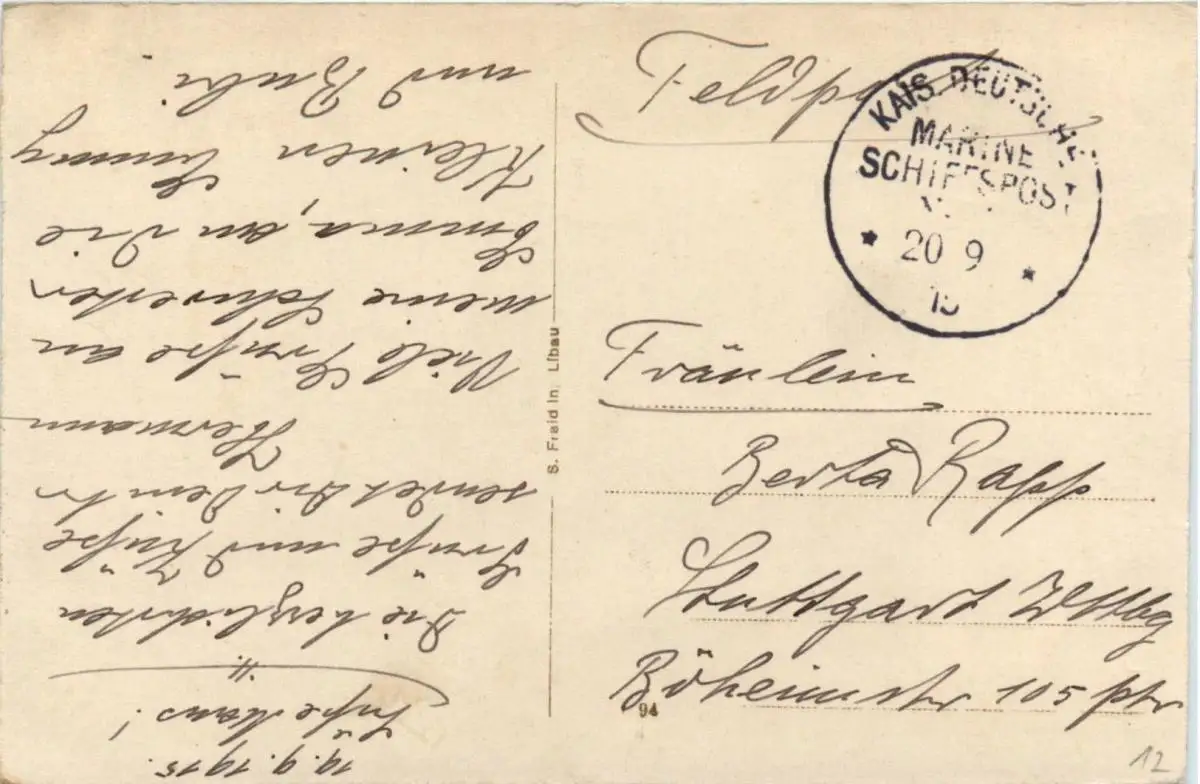 Feldpost
KAIS. DEUTSCHE
MARINE
SCHIFFSPOST
* 20 9 *
15
Fräulein
Berta Rapp
Stuttgart Wttbg
Böheimstr 105 ptr
94
12
S. Fraid in. Libau
19.9.1915.
Süße Maus!
Die herzlichsten
Grüße und Küße
sendet Dir Dein tr
Hermann
Viele Grüße an
meine Schwester
Emma, an die
Kleinen Emmy
und Bubi